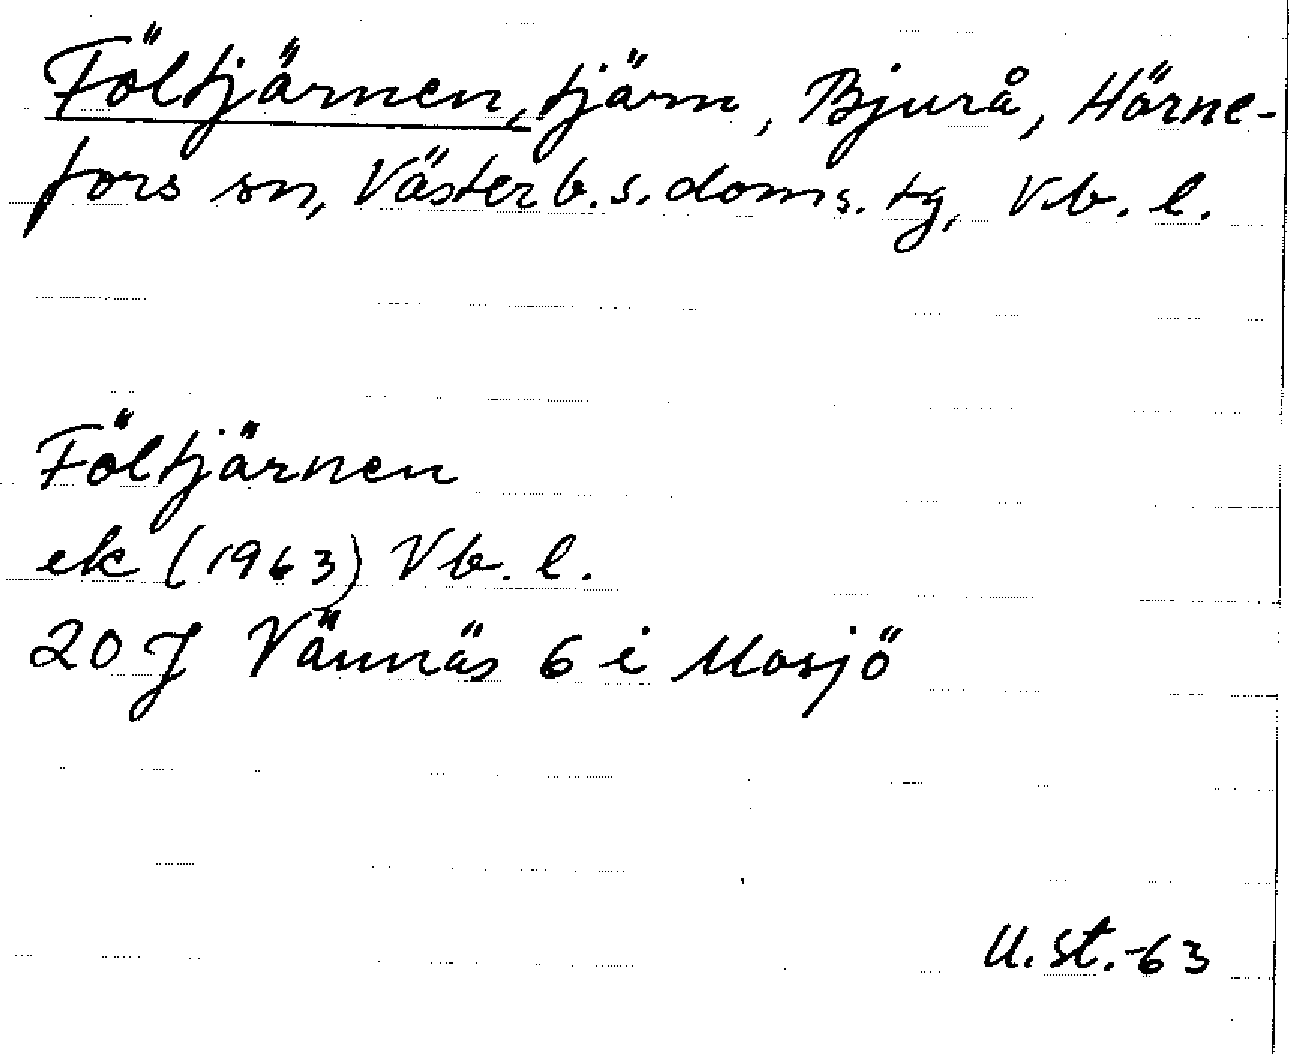 Föltjärnen, tjärn, Bjurå, Hörne-
fors sn, Västerb. s. doms. tg, Vb. l.
Föltjärnen
ek (1963) Vb. l.
20 J Vännäs 6 i Mosjö
U. St. -63